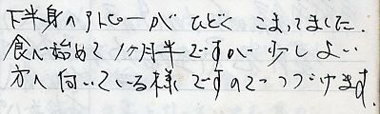 下半身のアトピーが ひどく こまってました.
食べ始めて 1ヶ月半ですが 少しよい
方へ向いている様ですのでつづけます.